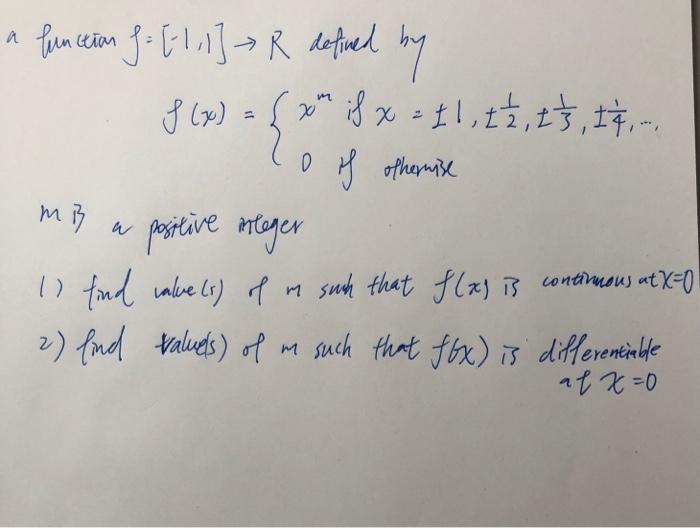 a function f = [-1,1] → R defined by
f(x) = { x^m if x = ±1, ±1/2, ±1/3, ±1/4, ...,
0 if otherwise
m is a positive integer
1) find value(s) of m such that f(x) is continuous at x=0
2) find value(s) of m such that f(x) is differentiable
at x=0